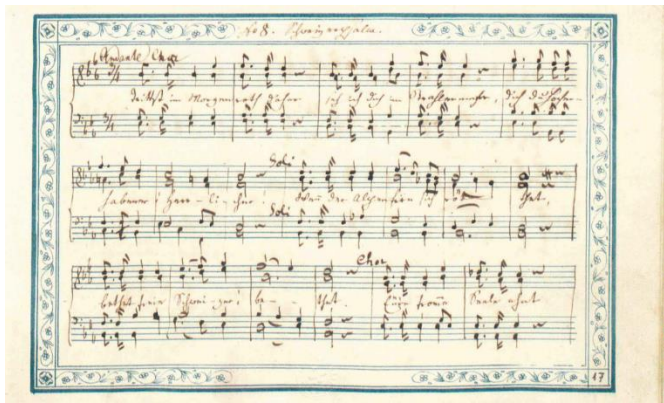 No 8. Schweizerpsalm.
Andante Chor
Trittst im Morgenroth daher seh ich dich im Strahlenmeer, dich du Hocher-
Soli
habener, Herr-li-cher! Wenn der Alpenfirn sich röthet,
Soli
Chor
bethet freie Schweizer! be - - thet. Eure fromme Seele ahnt
17